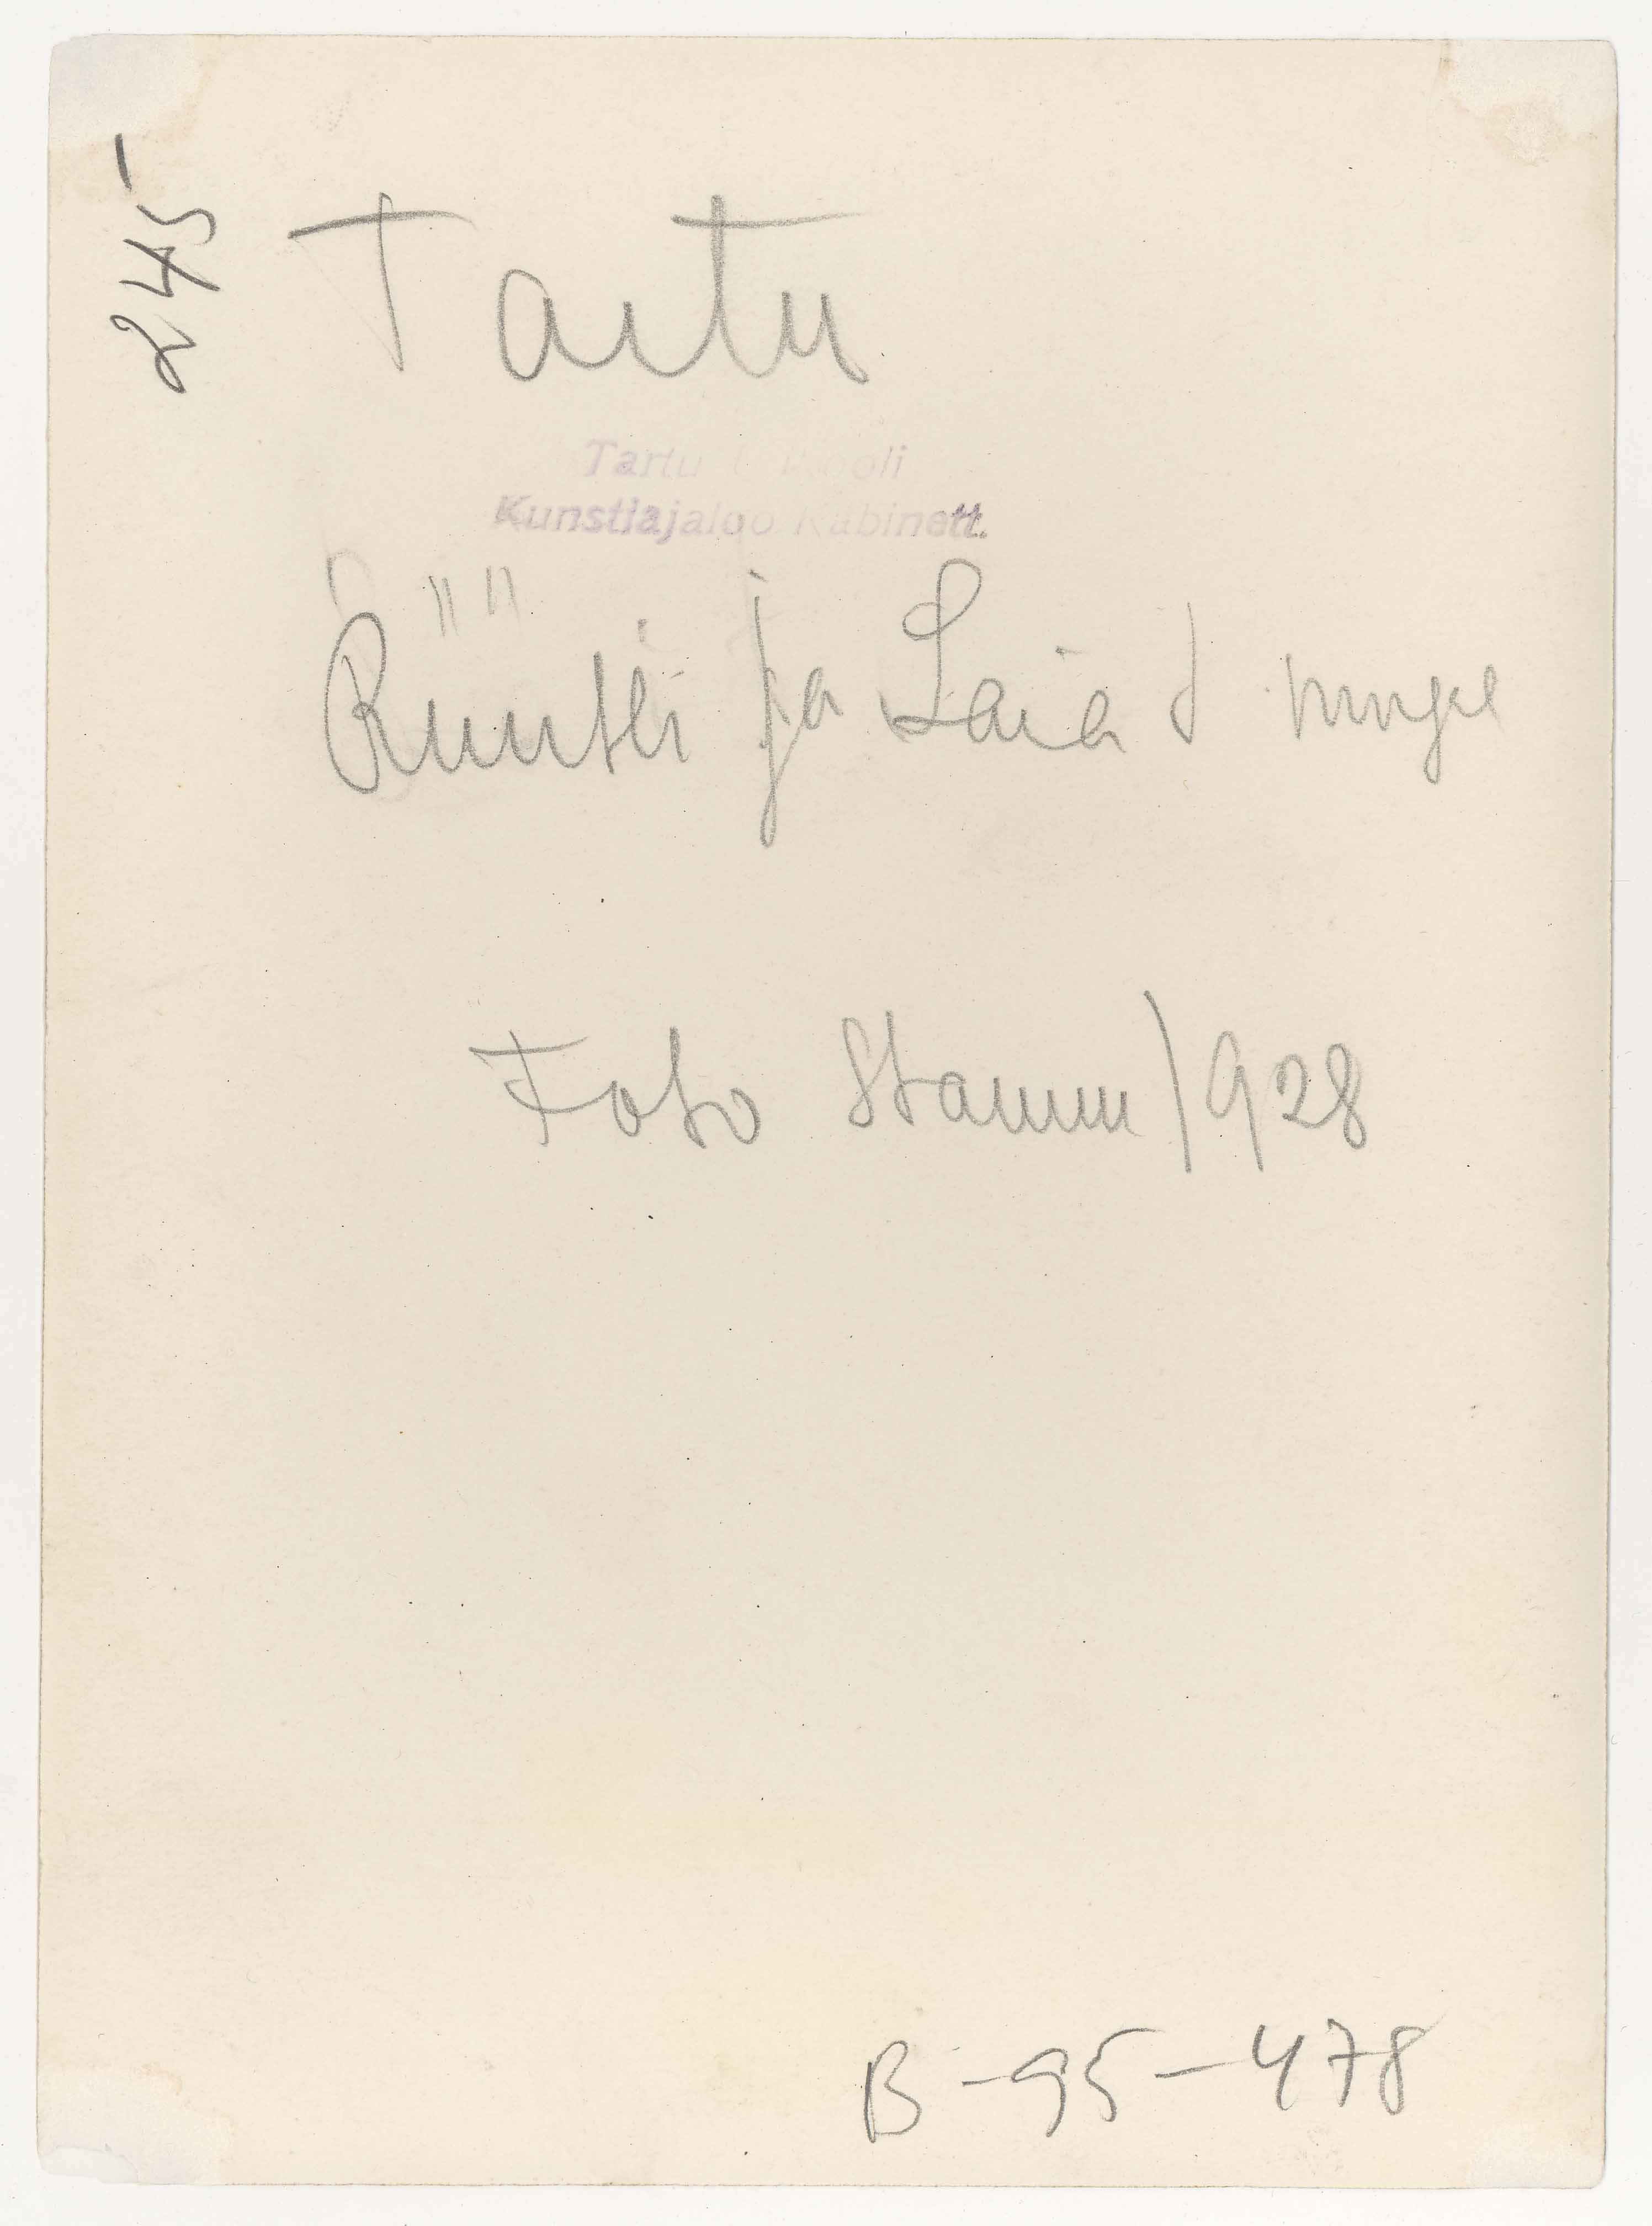 245
Tartu
Tartu Ü. Kooli
Kunstiajaloo Kabinett.
Rüütli ja Laia t nurgal
Foto Stamm 1928
B-95-478